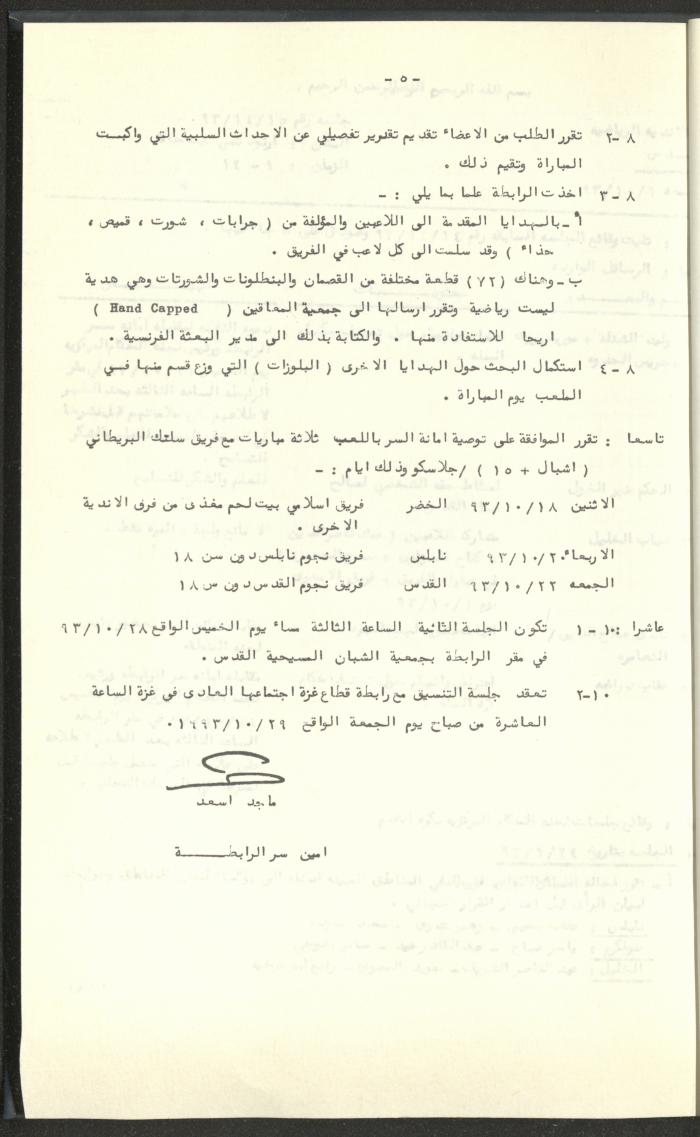 - ٥ -
٨ -٢ تقرر الطلب من الاعضاء تقديم تقرير تفصيلي عن الاحداث السلبية التي واكبت
المباراة وتقيم ذلك .
٨ -٣ اخذت الرابطة علما بما يلي : -
أ - بالهدايا المقدمة الى اللاعبين والمؤلفة من ( جرابات ، شورت ، قميص ،
حذاء ) وقد سلمت الى كل لاعب في الفريق .
ب - وهناك (٧٢) قطعة مختلفة من القمصان والبنطلونات والشورتات وهي هدية
ليست رياضية وتقرر ارسالها الى جمعية المعاقين ( Hand Capped )
اريحا للاستفادة منها . والكتابة بذلك الى مدير البعثة الفرنسية .
٨ -٤ استكمال البحث حول الهدايا الاخرى ( البلوزات ) التي وزع قسم منها فسي
الملعب يوم المباراة .
تاسعا : تقرر الموافقة على توصية امانة السر باللعب ثلاثة مباريات مع فريق سلتك البريطاني
( اشبال + ١٥ ) /جلاسكو وذلك ايام : -
الاثنين ٩٣/١٠/١٨ الخضر فريق اسلامي بيت لحم مغذى من فرق الاندية
الاخرى .
الاربعاء ٩٣/١٠/٢٠ نابلس فريق نجوم نابلس دون سن ١٨
الجمعه ٩٣/١٠/٢٢ القدس فريق نجوم القدس دون س ١٨
عاشرا : ١٠-١ تكون الجلسة الثانية الساعة الثالثة مساء يوم الخميس الواقع ٩٣/١٠/٢٨
في مقر الرابطة بجمعية الشبان المسيحية القدس .
١٠-٢ تعقد جلسة التنسيق مع رابطة قطاع غزة اجتماعها العادى في غزة الساعة
العاشرة من صباح يوم الجمعة الواقع ١٩٩٣/١٠/٢٩ .
ماجد اسعد
امين سر الرابطـــــة